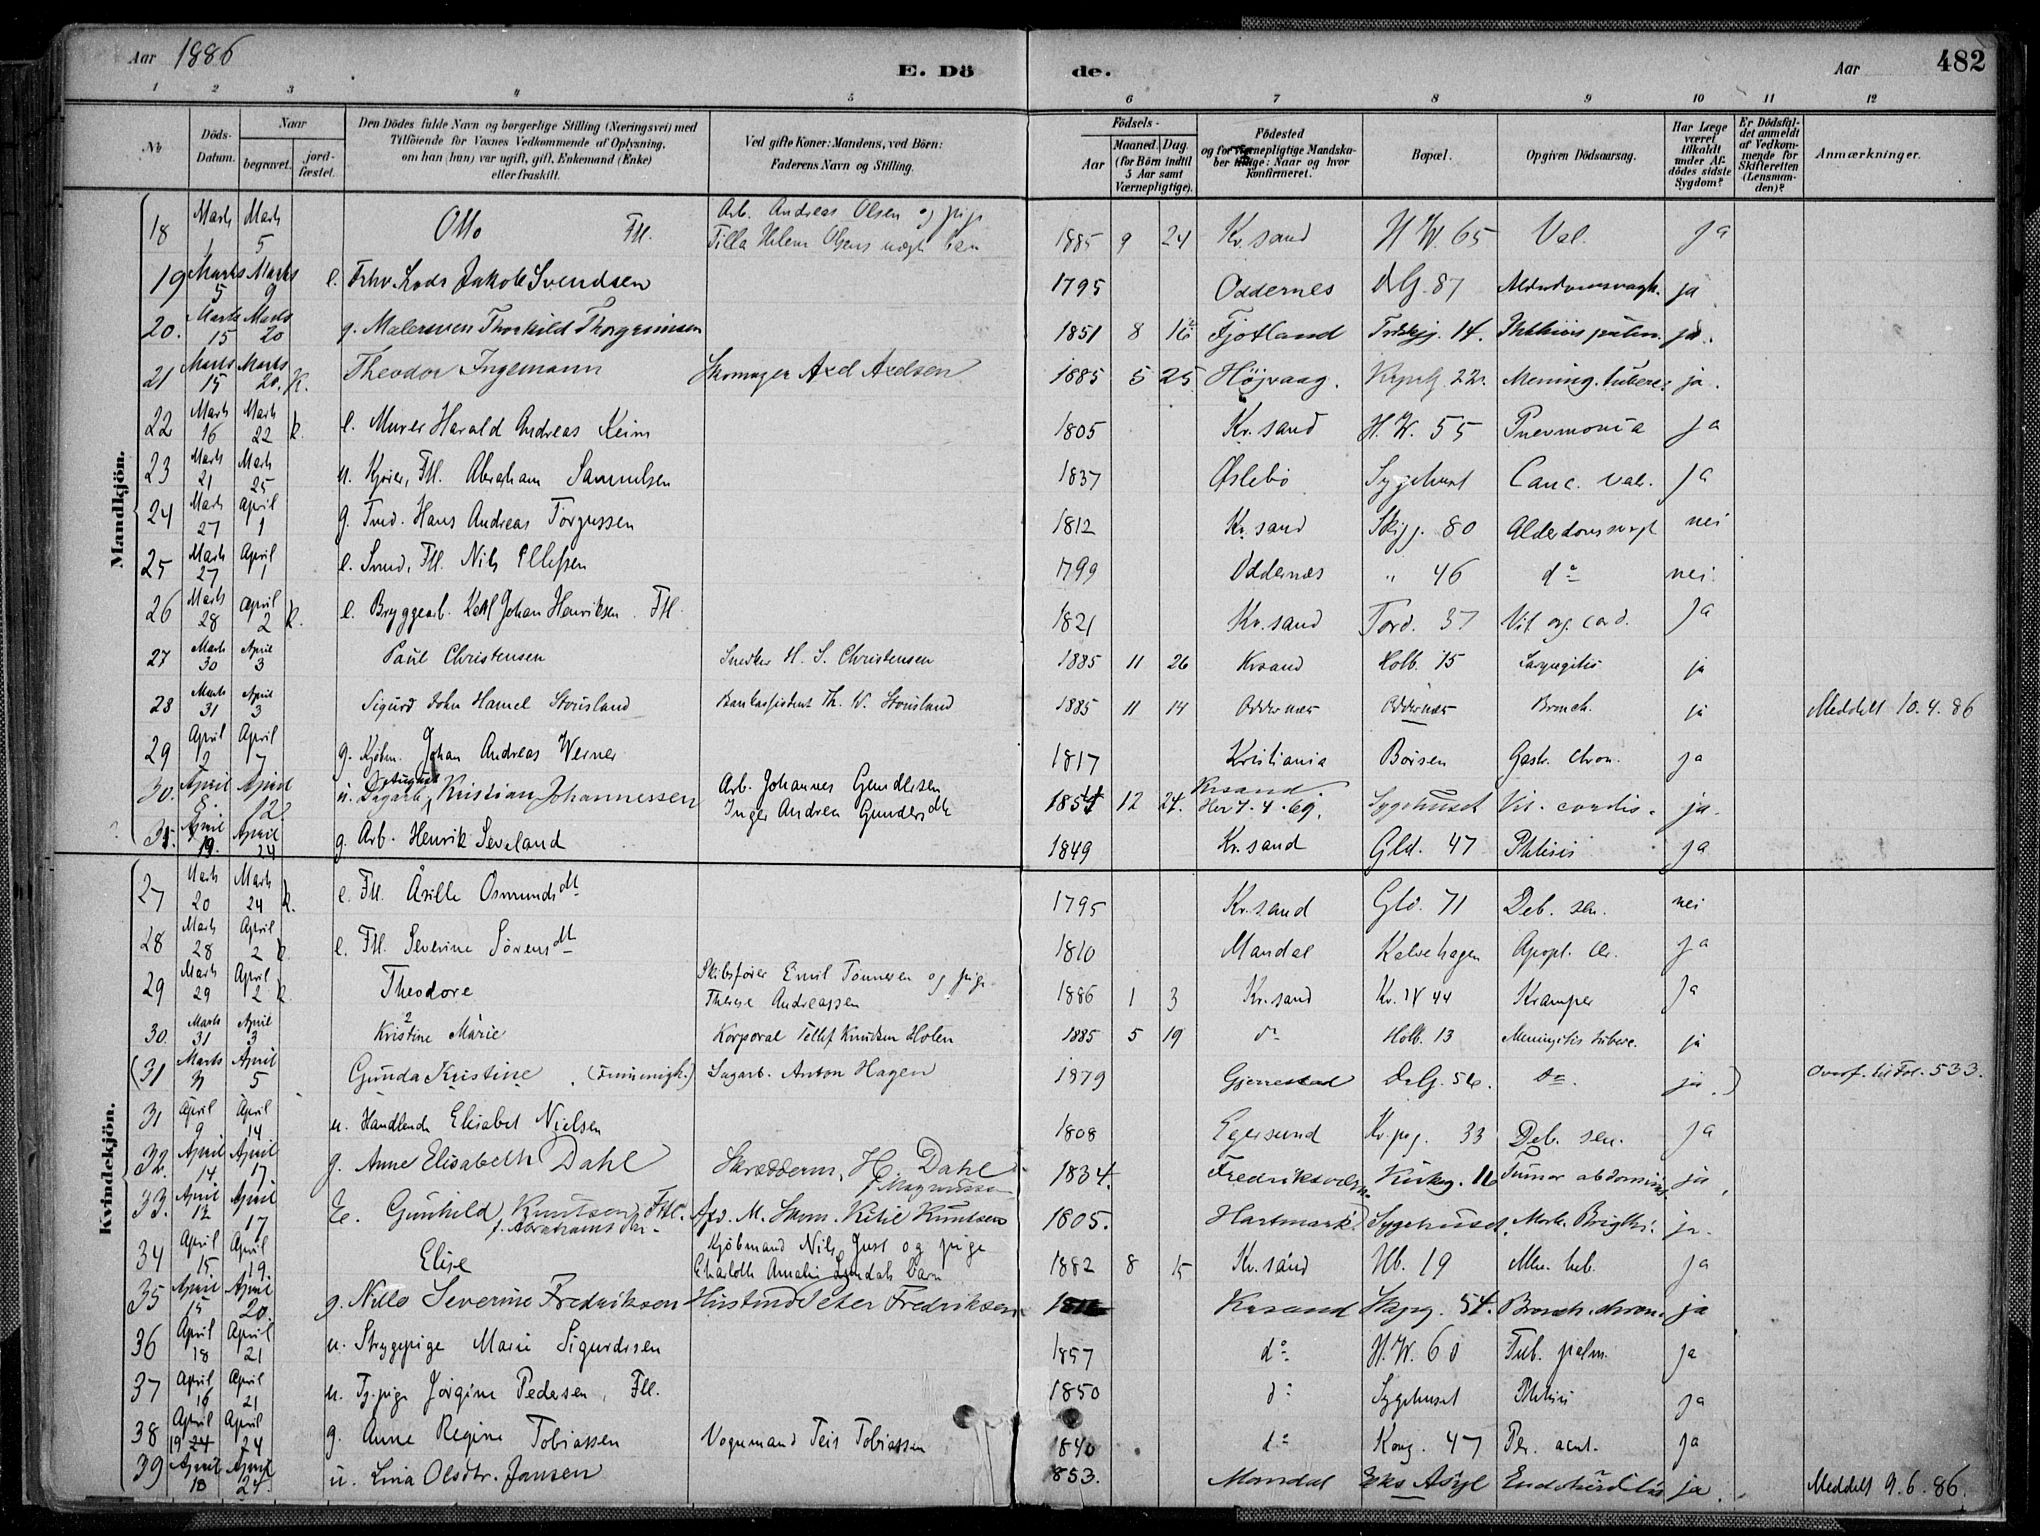 Aar 1886 E. Döde. Aar 482
1 2 3 4 5 6 7 8 9 10 11 12
No Döds-Datum. Naar begravet. jordfæstet. Den Dödes fulde Navn og borgerlige Stilling (Næringsvei) med Tilföiende for Voxnes Vedkommende af Oplysning, om han (hun) var ugift, gift, Enkemand (Enke) eller fraskilt. Ved gifte Koner: Mandens, ved Börn: Faderens Navn og Stilling. Födsels- Aar Maaned. Dag. (for Börn indtil 5 Aar samt Værnepligtige). Födested og for værnepligtige Mandskaber tillige: Naar og hvor konfirmeret. Bopæl. Opgiven Dödsaarsag. Har Læge været tilkaldt under Afdödes sidste Sygdom? Er Dödsfaldet anmeldt af Vedkommende for Skifteretten (Lensmanden)? Anmærkninger.
Mandkjön.
18 Marts 1 Marts 5 Otto Fll. Arb. Andreas Olsen og pige Tilla Helene Olsens uægte barn 1885 9 24 Kr.sand H.W. 65 Val. ja
19 Marts 5 Marts 9 e. Fhv. Lods Jakob Svendsen 1795 Oddernes D.G. 87 ja
20. Marts 15 Marts 20 g. Malersvend Thorkild Thorgrimsen 1851 8 16 Fjotland 14. Phthisis pulm. ja.
21 Marts 15 Marts 20. K. Theodor Ingemann Skomager Axel Axelsen 1885 5 25 Höivaag. 22. Mening. tuberc. ja.
22 Marts 16 Marts 22 k. e. Murer Harald Andreas Keim 1805 Kr.sand H.W. 55 Pnevmonia ja
23 Marts 21 Marts 25 u. Fll. Abraham Samuelsen 1837 Øslebö Sygehuset Canc. val. ja
24 Marts 27 April 1 g. Hans Andreas Torgussen 1812 Kr.sand Skipg. 80 Alderdomssvagt nei
25 Marts 27 April 1 e. Fll. Nils Ellefsen 1799 Oddernæs " 46 do nei.
26 Marts 28 April 2 k. e. Bryggearb. Karl Johan Henriksen. Fll. 1821 Kr.sand Tord. 37 Vit. org. cord. ja
27 Marts 30 April 3 Paul Christensen Snedker H. S. Christensen 1885 11 26 Krsand Holb. 15 Laryngitis ja
28 Marts 31 April 3 Sigurd John Hamel Stousland Bankassistent Th. W. Stousland 1885 11 14 Oddernæs Oddernæs Bronch. ja Meddelt 10.4.86
29 April 2 April 7 g. Kjøbm. Johan Andreas Werner 1817 Kristiania Børsen Gastr. chron. ja
30. April 8. April 12. u. Dagarb. August Kristian Johannessen Arb. Johannes Gundersen Inger Andrea Gundersdt 1854 12 24. Krsand. Her 7.4.69. Sygehuset Vit. cordis. ja.
31. April 19. April 24 g. Arb. Henrik Seveland 1849 Kr.sand Gld. 47 Phtisis ja
Kvindekjön.
27 Marts 20 Marts 24 k. e. Fll. Åsille Osmundsdt 1795 Kr.sand Gld. 71 Deb. sen. nei
28 Marts 28 April 2 k e. Fll. Severine Sørensdt 1810 Mandal Kalvehagen Apopl. cer. ja
29 Marts 29 April 2 k. Theodore Skibsfører Emil Tønnesen og pige Therese Andreassen 1886 1 3 Kr.sand Kr. IV 44 Kramper ja
30. Marts 31 April 3 Kristine Marie Korporal Tellef Knudsen Holen 1885 5 19 do Holb. 13 Meningitis tuberc. ja
(31 Marts 31 April 5 Gunda Kristine. (Frimenigh.) Sagarb. Anton Hagen 1879 Gjerrestad D.G. 56. do. ja.) Overf. til Fol. 533.
31 April 9 April 14 u. Handlende Elisabet Nielsen 1808 Egersund Kr.pg. 33 Deb. sen. ja
32. April 14 April 17 g. Anne Elisabeth Dahl f. Magnussen Skrædderm. H. Dahl 1834. Fredriksværn Kirkeg. 16 Tumor abdominis ja.
33. April 12 April 17 E. Gunhild Knutsen, Fttl. f. Abrahamsdtr. Afd. M. Skom. Ketil Knutsen 1805. Hartmark Sygehuset Morb. Brigthi. ja.
34 April 15 April 19. Elise Kjøbmand Nils Just og pige Charlotte Amalie Lindals barn 1882 8 15 Kr.sand Hb. 19 Men. tub. ja
35 April 15 April 20. g. Nille Severine Fredriksen Hustind Peter Fredriksen Krsand Skipg. 54. Bronch. chron. ja
36 April 18 April 21 u. Strygepige Marie Sigurdsen 1857 do H.W. 60 Tub. pulm. ja
37 April 16 April 21 u. Tj.pige Jørgine Pedersen, Fll. 1850 do Sygehuset Phtisis ja
38 April 19 24 April 24 g. Anne Regine Tobiassen Vognmand Teis Tobiassen 1840 do Kong. 47 Per. acut. ja
39 April 18 April 24. u. Lina Olsdtr. Jansen 1853. Mandal Eks Asyl Endokarditis ja. Meddelt 9.6.86.